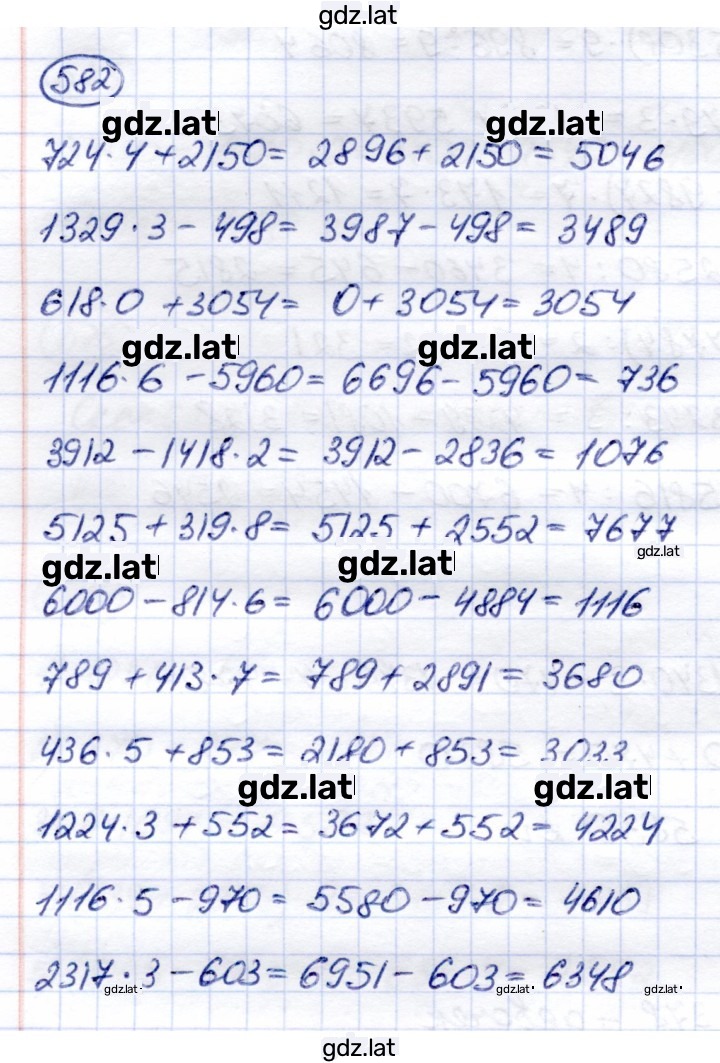 gdz.lat
582
gdz.lat gdz.lat
724·4+2150= 2896+2150=5046
1329·3-498= 3987-498=3489
618·0+3054= 0+3054=3054
gdz.lat gdz.lat
1116·6-5960=6696-5960=736
3912-1418·2=3912-2836=1076
5125+319·8= 5125+2552=7677
gdz.lat
gdz.lat gdz.lat
6000-814·6= 6000-4884=1116
789+413·7= 789+2891=3680
436·5+853=2180+853=3033
gdz.lat gdz.lat
1224·3+552=3672+552=4224
1116·5-970=5580-970=4610
2317·3-603=6951-603=6348
gdz.lat gdz.lat gdz.lat
gdz.lat